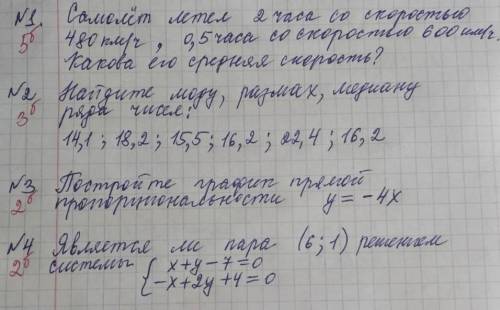 №1. Самолёт летел 2 часа со скоростью
5б 480 км/ч, 0,5 часа со скоростью 600 км/ч.
Какова его средняя скорость?
№2 Найдите моду, размах, медиану
3б ряда чисел:
14,1; 18,2; 15,5; 16,2; 22,4; 16,2
№3 Постройте график прямой
2б пропорциональности y = -4x
№4 Является ли пара (6; 1) решением
2б системы { x + y - 7 = 0
-x + 2y + 4 = 0